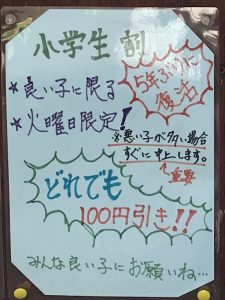 小学生割
5年ぶりに
復活
★良い子に限る
★火曜日限定!
※悪い子が多い場合
すぐに中止します。
重要
どれでも
100円引き!!
みんな良い子にお願いね…